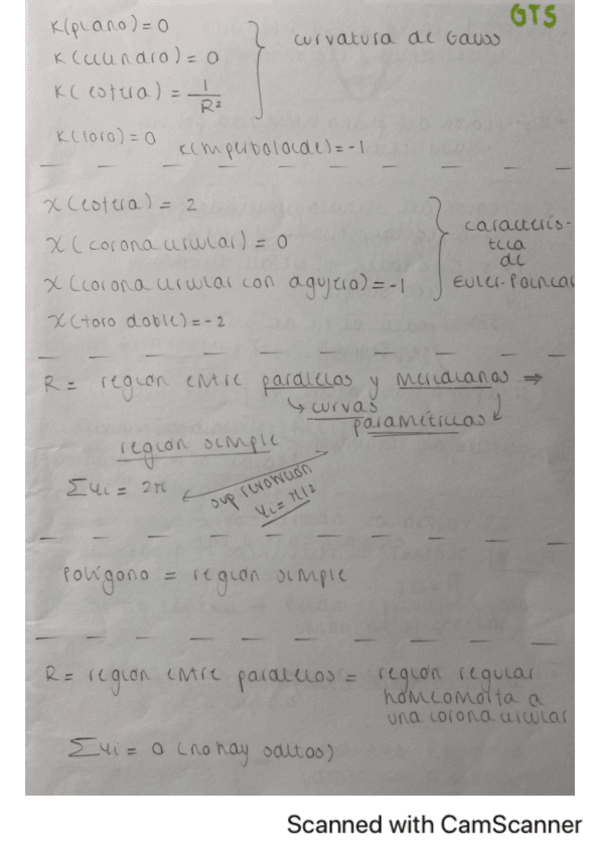 GTS
K(plano)=0
K(cilindro)=0
K(esfera)=1/R²
curvatura de Gauss
K(toro)=0 K(hiperboloide)=-1
χ(esfera)=2
χ(corona circular)=0
χ(corona circular con agujero)=-1
χ(toro doble)=-2
caracterís-
tica
de
Euler-Poincar
R= región entre paralelos y meridianos ⇒
↳ curvas
paramétricas
región simple
Σφi = 2π
sup revolución
φi=π/2
Polígono = región simple
R= región entre paralelos = región regular
homeomorfa a
una corona circular
Σφi = 0 (no hay saltos)
Scanned with CamScanner